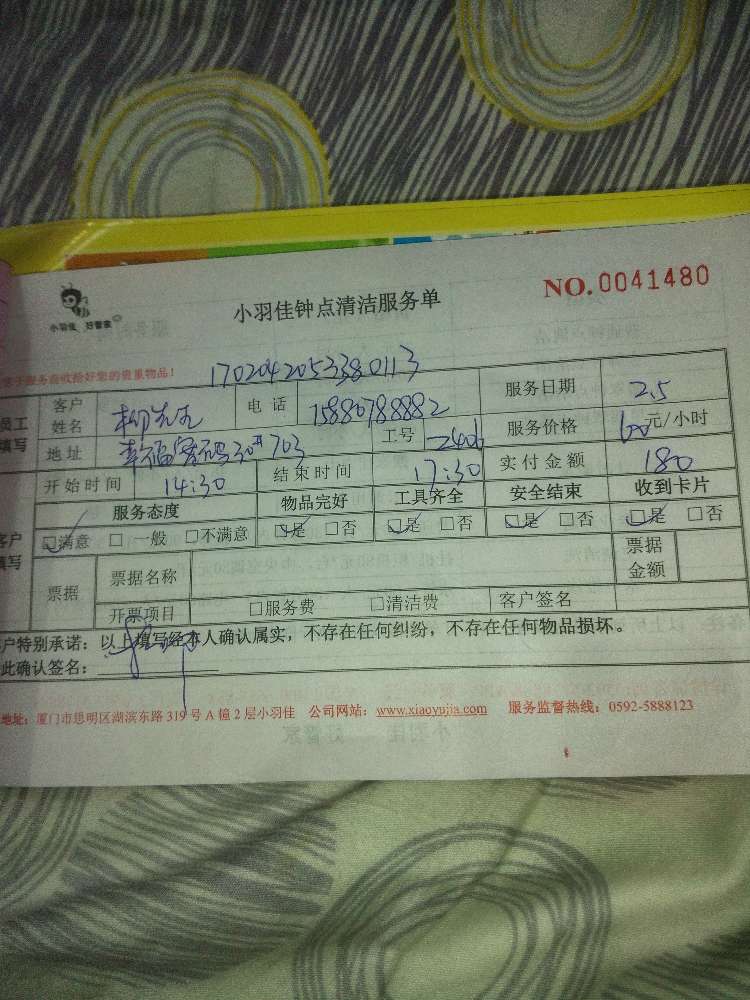 小羽佳 好管家
小羽佳钟点清洁服务单
NO.0041480
务必收拾好您的贵重物品!
17020420533380113
员工填写
客户姓名 柳先生 电话 15880788882 服务日期 2.5
地址 幸福客码30# 703 工号 2406 服务价格 60元/小时
开始时间 14:30 结束时间 17:30 实付金额 180
客户填写
服务态度 物品完好 工具齐全 安全结束 收到卡片
☑满意 □一般 □不满意 ☑是 □否 ☑是 □否 ☑是 □否 ☑是 □否
票据 票据名称 票据金额
开票项目 □服务费 □清洁费 客户签名
客户特别承诺：以上填写经本人确认属实，不存在任何纠纷，不存在任何物品损坏。
此确认签名：
地址：厦门市思明区湖滨东路319号A幢2层小羽佳 公司网站：www.xiaoyujia.com 服务监督热线：0592-5888123